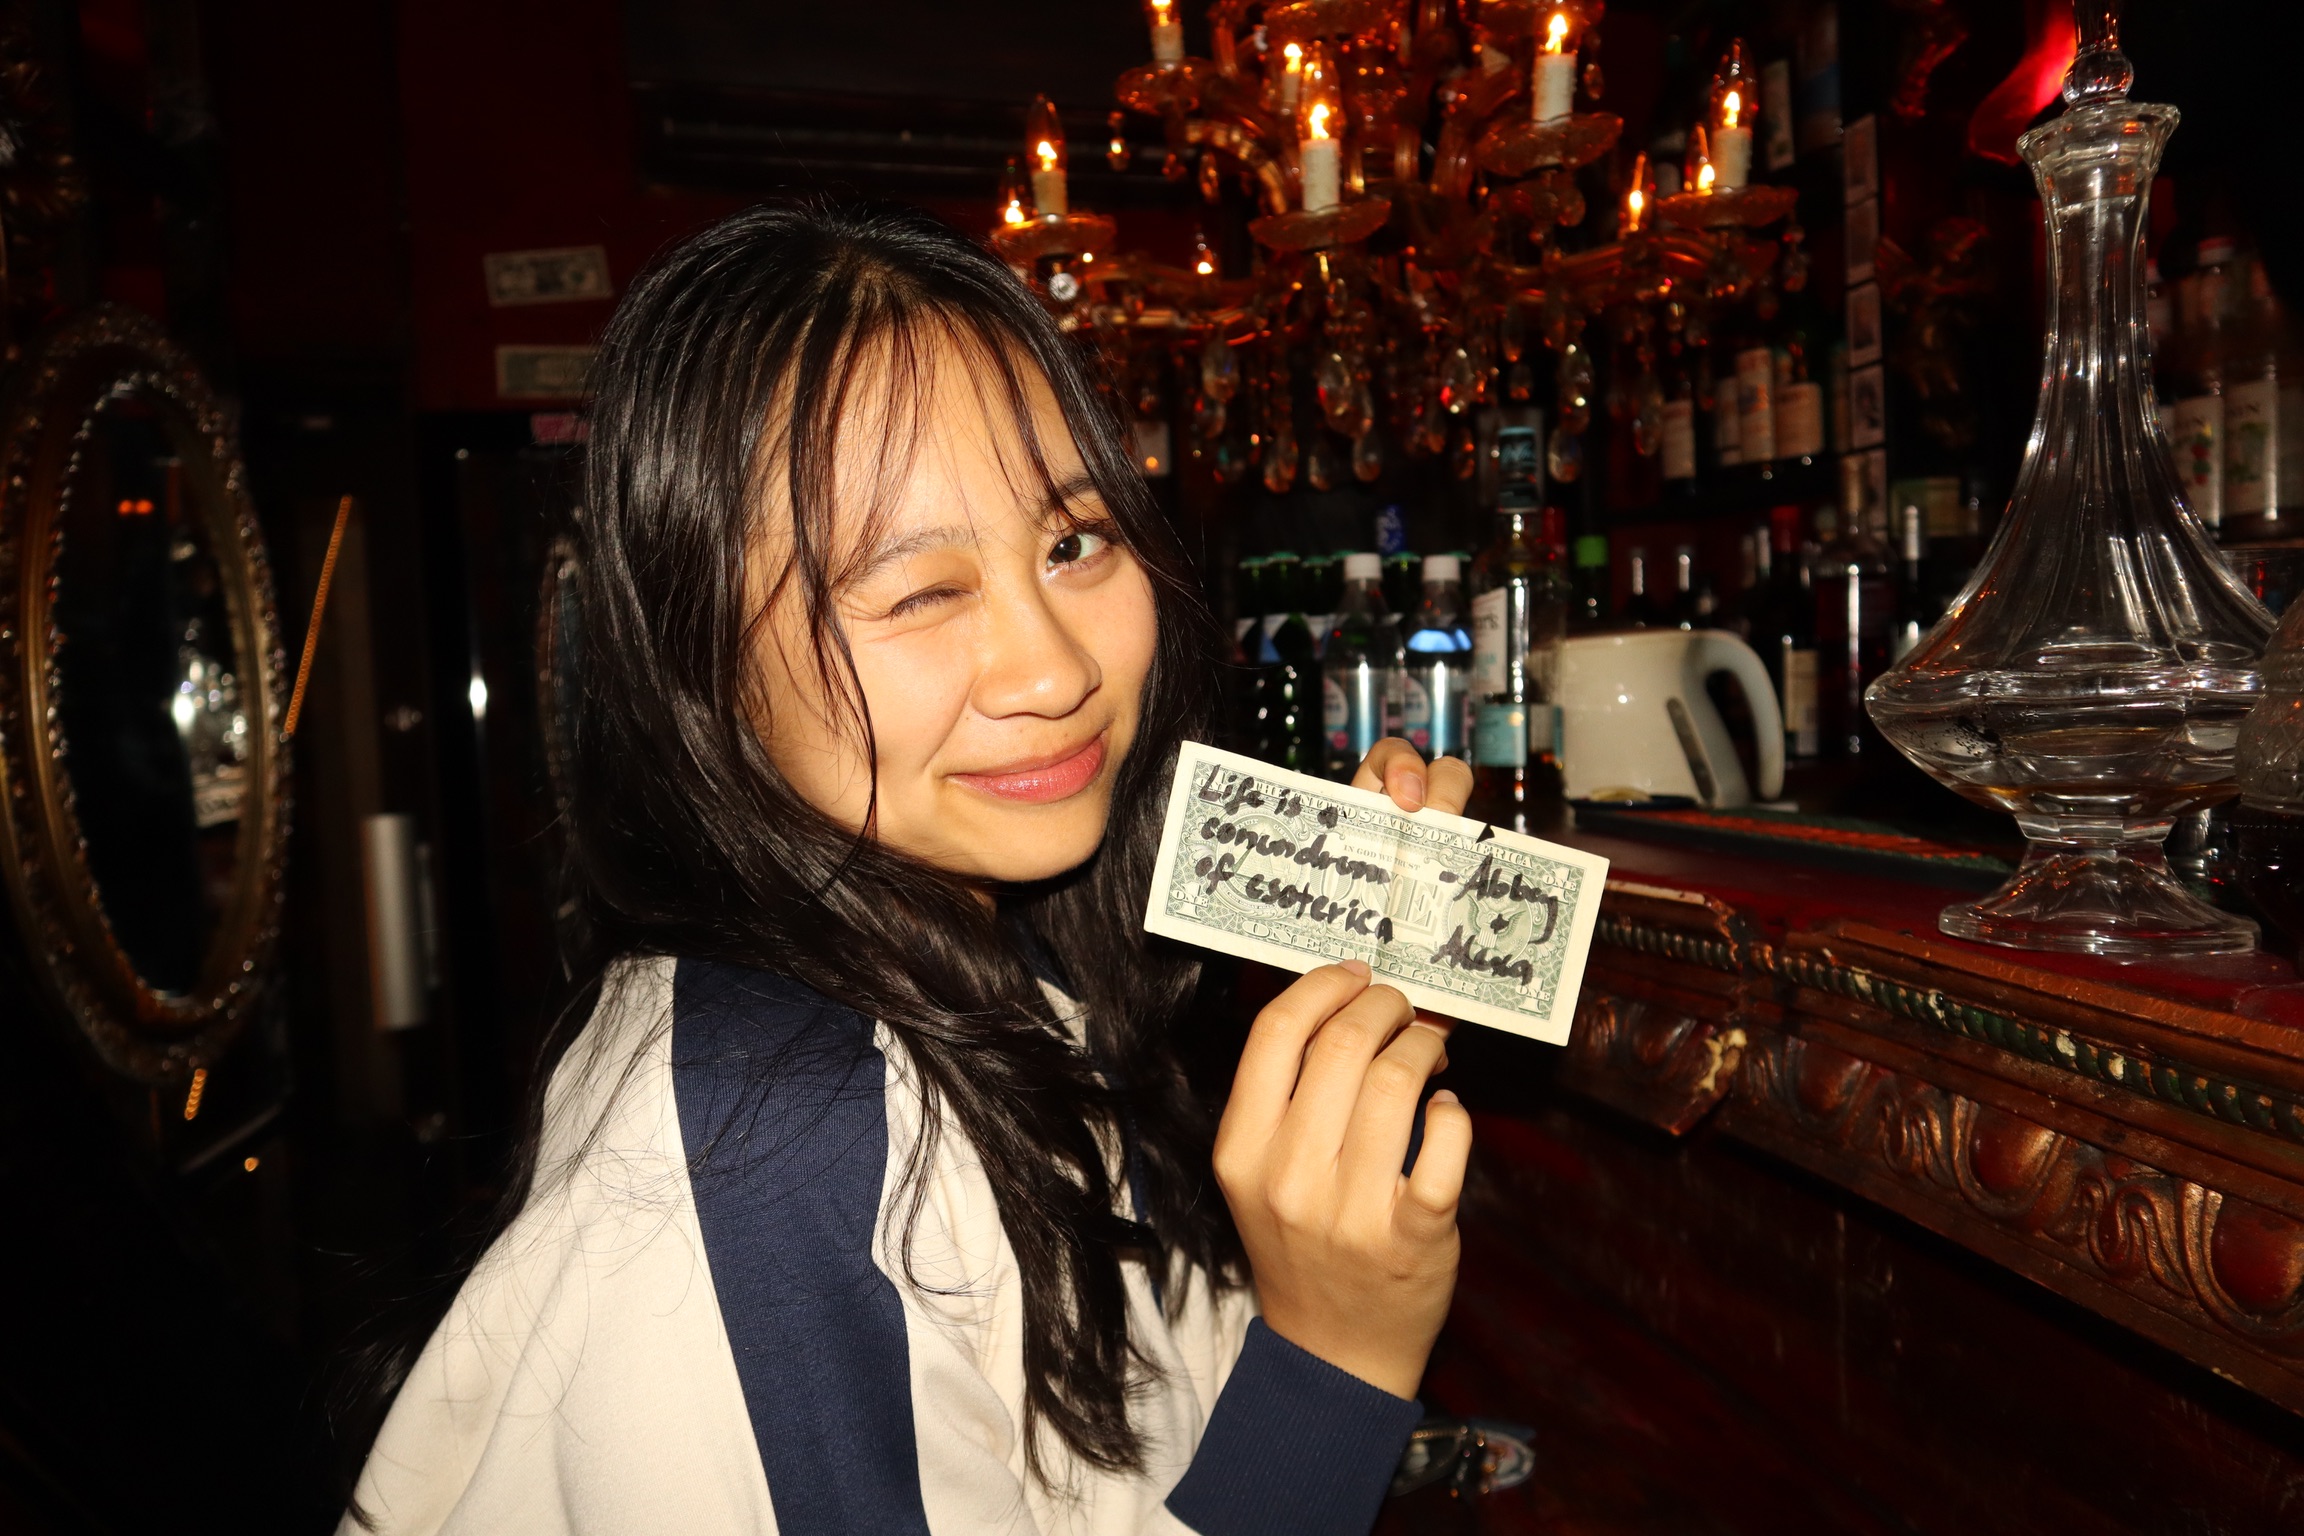 Life is a
conundrum
of esoterica
- Abbey
+
Alexa
THE UNITED STATES OF AMERICA
IN GOD WE TRUST
ONE
ONE DOLLAR
ONE
ONE
ONE